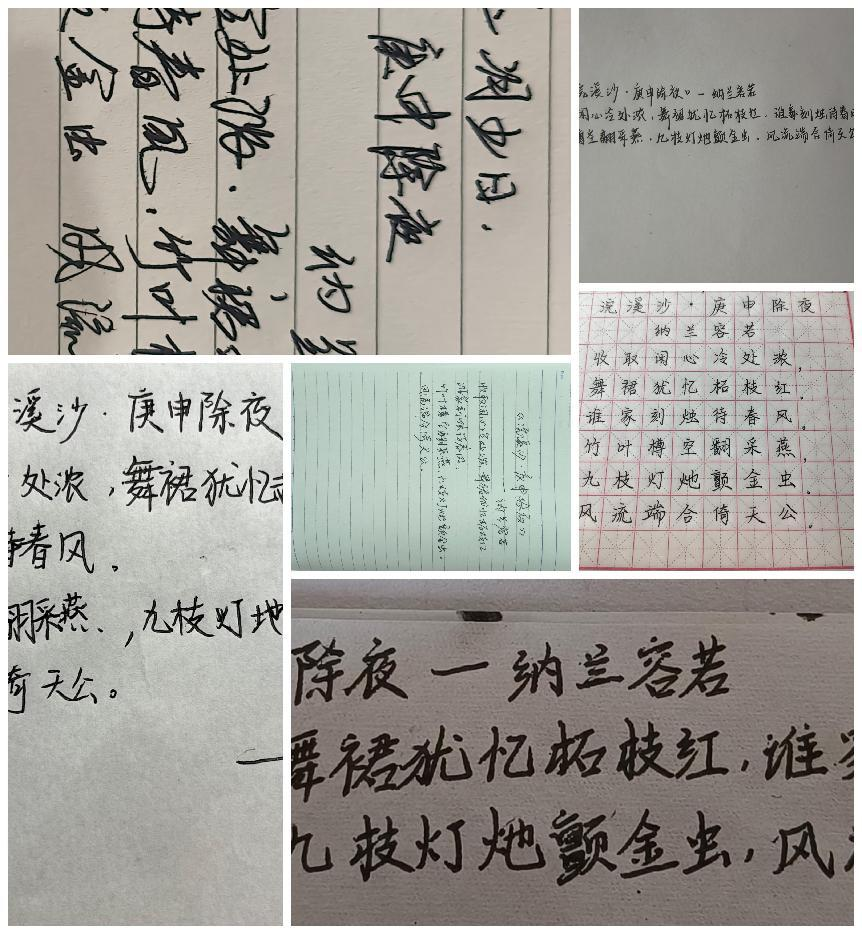 庚申除夜
纳兰
处浓，舞裙
待春风，竹叶
金虫 风流
溪沙·庚申除夜。—纳兰容若
闲心冷处浓，舞裙犹忆柘枝红，谁家刻烛待春
翻采燕，九枝灯灺颤金虫，风流端合倚天公
浣溪沙·庚申除夜
纳兰容若
收取闲心冷处浓，
舞裙犹忆柘枝红。
谁家刻烛待春风。
竹叶樽空翻采燕，
九枝灯灺颤金虫。
风流端合倚天公。
溪沙·庚申除夜
处浓，舞裙犹忆
春风。
翻采燕，九枝灯地
倚天公。
一
《浣溪沙·庚申除夜》
纳兰容若
收取闲心冷处浓，舞裙犹忆柘枝红
谁家刻烛待春风。
竹叶樽空翻采燕，九枝灯灺颤金虫。
风流端合倚天公。
除夜—纳兰容若
舞裙犹忆柘枝红，谁
九枝灯灺颤金虫，风